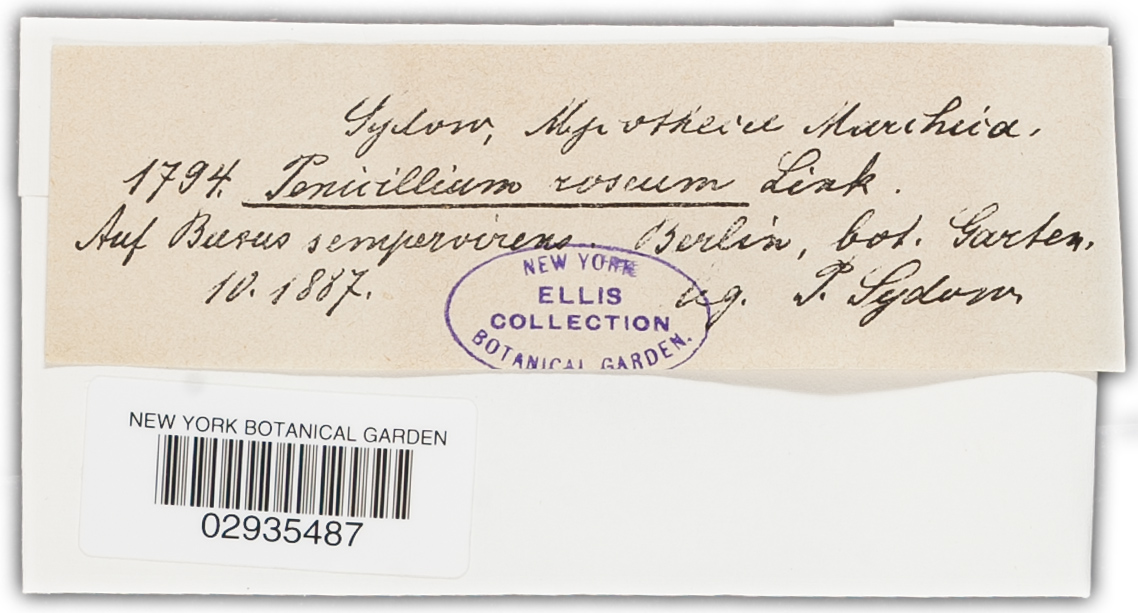 Sydow, Mycotheca Marchica.
1794. Penicillium roseum Link.
Auf Buxus sempervirens. Berlin, bot. Garten.
10. 1887. lig. P. Sydow
NEW YORK
ELLIS
COLLECTION
BOTANICAL GARDEN.
NEW YORK BOTANICAL GARDEN
02935487